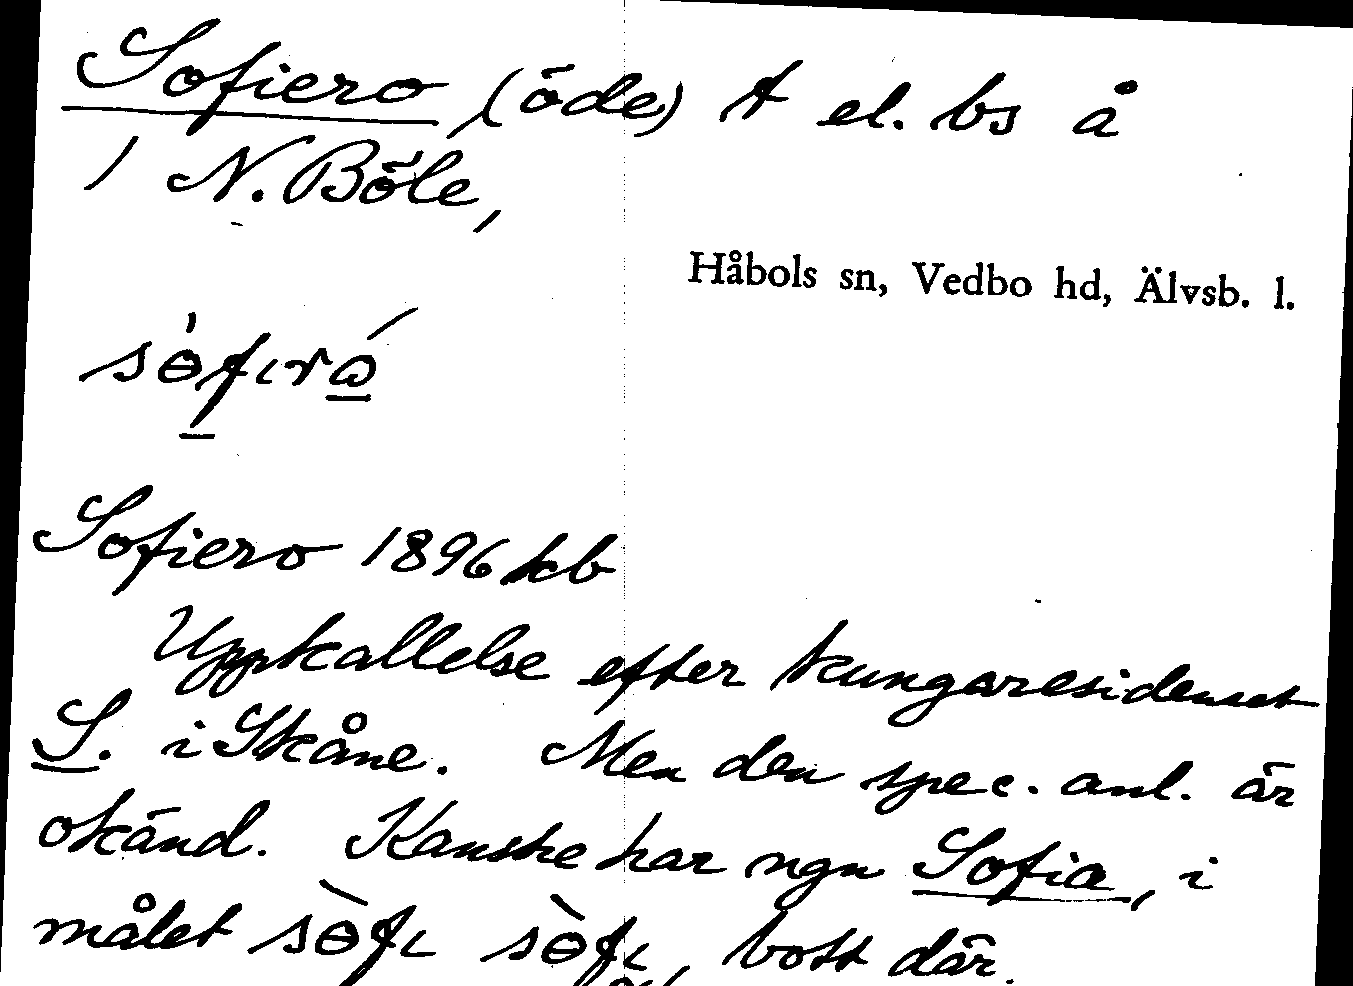 Sofiero (öde) t el. bs å
/ N. Böle,
Håbols sn, Vedbo hd, Älvsb. l.
Sofiero 1896 kb
Uppkallelse efter kungaresidenset
S. i Skåne. Men den spec. anl. är
okänd. Kanske har ngn Sofia, i
målet sɵ̀fɩ sɵ̀fɩ, bott där.